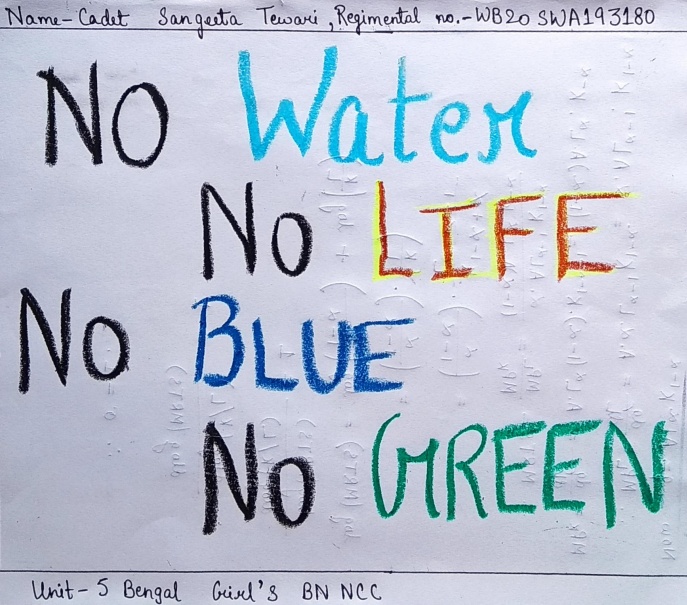 Name- Cadet Sangeeta Tewari, Regimental no.- WB20 SWA193180
No Water
No LIFE
No BLUE
No GREEN
Unit- 5 Bengal Girl's BN NCC